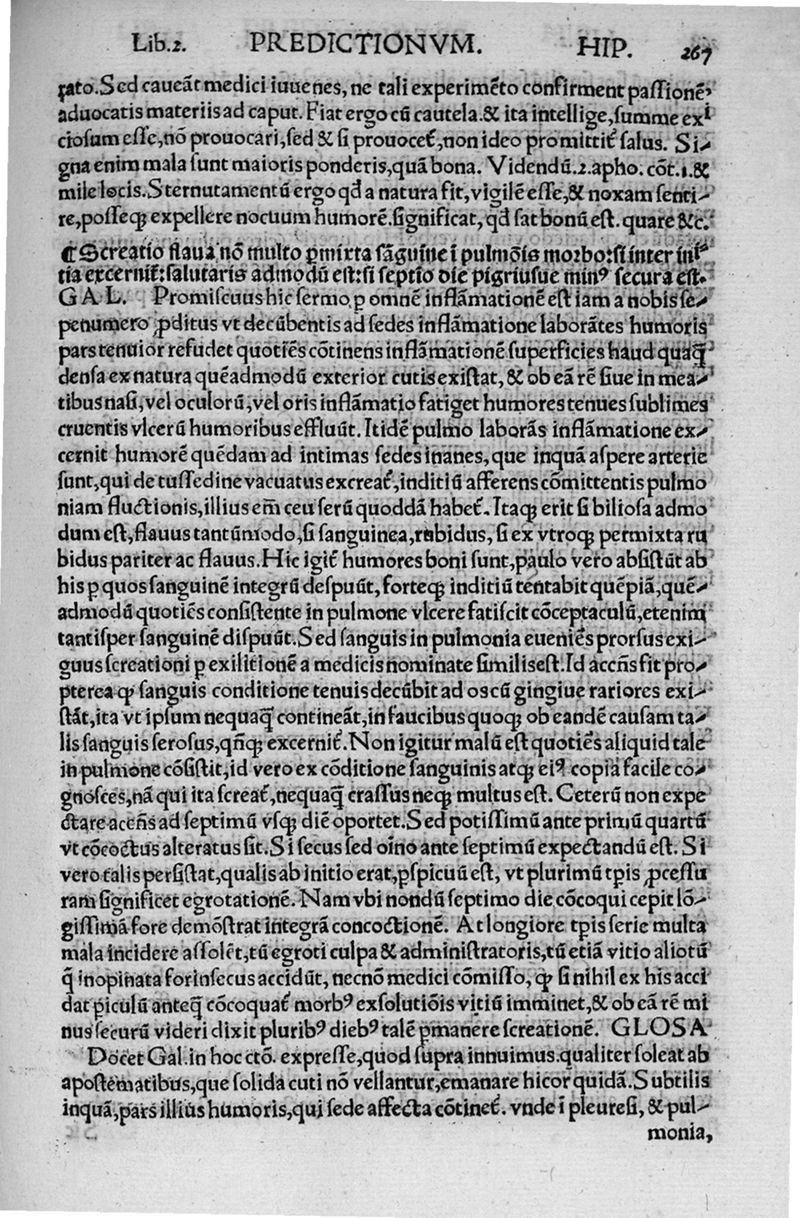 Lib.2. PREDICTIONVM. HIP. 267
rato. Sed caueāt medici iuuenes, ne tali experimēto confirment passionē,
aduocatis materiis ad caput. Fiat ergo cū cautela. & ita intellige, summe exi
ciosum esse, nō prouocari, sed & si prouocet᷑, non ideo promittit᷑ salus. Si-
gna enim mala sunt maioris ponderis, quā bona. Videndū. 2. apho. cōt. 1. &
mile locis. Sternutamentū ergo qđ a natura fit, vigilē esse, & noxam senti-
re, posseqꝫ expellere nocuum humorē. significat, qđ sat bonū est. quare &c.
¶ Screatio flaua nō multo ꝑmixta sāguine ī pulmōis morbo: si inter ini
tia excernit᷑: salutaris admodū est: si septīo die pigriusue minꝰ secura est.
GAL. Promiscuus hic sermo, ꝑ omnē inflāmationē est iam a nobis se-
penumero ꝓditus vt decūbentis ad sedes inflāmatione laborātes humoris
pars tenuior refudet quotiēs cōtinens inflāmationē superficies haud quaq̄
densa ex natura quēadmodū exterior cutis existat, & ob eā rē siue in mea-
tibus nasi, vel oculorū, vel oris inflāmatio fatiget humores tenues sublimes
cruentis vlcerū humoribus effluūt. Itidē pulmo laborās inflāmatione ex-
cernit humorē quēdam ad intimas sedes inanes, que inquā aspere arterie
sunt, qui de tussedine vacuatus excreat᷑, inditiū afferens cōmittentis pulmo
niam fluctionis, illius em̄ ceu serū quoddā habet᷑. Itaqꝫ erit si biliosa admo
dum est, flauus tantūmodo, si sanguinea, rubidus, si ex vtroqꝫ permixta ru
bidus pariter ac flauus. Hic igit᷑ humores boni sunt, paulo vero absistūt ab
his ꝑ quos sanguinē integrū despuūt, forteqꝫ inditiū tentabit quēpiā, quē-
admodū quotiēs consistente in pulmone vlcere fatiscit cōceptaculū, etenim
tantisper sanguinē dispuūt. Sed sanguis in pulmonia eueniēs prorsus exi-
guus screationi ꝑ exilitionē a medicis nominate similis est. Id accn̄s fit pro-
pterea qꝙ sanguis conditione tenuis decūbit ad oscū gingiue rariores exi-
stāt, ita vt ipsum nequaq̄ contineāt, in faucibus quoqꝫ ob eandē causam ta-
lis sanguis serosus, qn̄qꝫ excernit᷑. Non igitur malū est quotiēs aliquid tale
in pulmone cōsistit, id vero ex cōditione sanguinis atqꝫ eiꝰ copia facile co-
gnosces, nā qui ita screat᷑, nequaq̄ crassus neqꝫ multus est. Ceterū non expe
ctare accn̄s ad septimū vsqꝫ diē oportet. Sed potissimū ante primū quartū
vt cōcoctus alteratus sit. Si secus sed oīno ante septimū expectandū est. Si
vero talis persistat, qualis ab initio erat, ꝑspicuū est, vt plurimū tꝑis ꝓcessu
ram significet egrotationē. Nam vbi nondū septimo die cōcoqui cepit lō-
gissimā fore demōstrat integrā concoctionē. At longiore tꝑis serie multa
mala incidere assolēt, tū egroti culpa & administratoris, tū etiā vitio aliorū
q̄ inopinata forinsecus accidūt, necnō medici cōmisso, ꝙ si nihil ex his acci
dat ꝑiculū anteq̄ cōcoquat᷑ morbꝰ exsolutiōis vitiū imminet, & ob eā rē mi
nus securū videri dixit pluribꝰ diebꝰ talē ꝑmanere screationē. GLOSA
Docet Gal. in hoc cōto. expresse, quod supra innuimus. qualiter soleat ab
apostēmatibus, que solida cuti nō vellantur, emanare hicor quidā. Subtilis
inquā, pars illius humoris, qui sede affecta cōtinet᷑. vnde ī pleuresi, & pul-
monia,